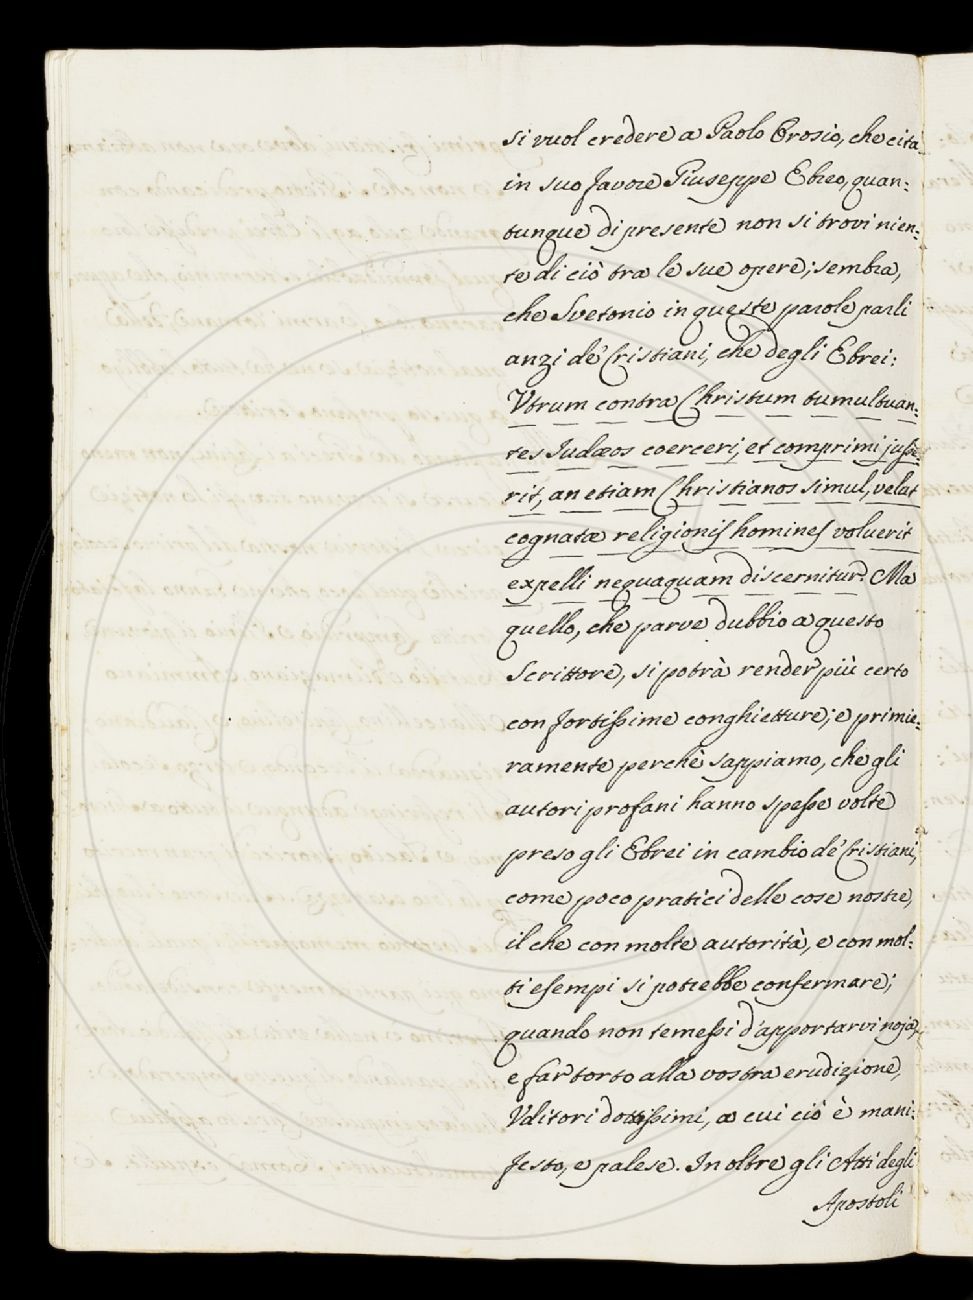 si vuol credere a Paolo Orosio, che cita
in suo favore Giuseppe Ebreo, quan:
tunque di presente non si trovi nien:
te di ciò tra le sue opere; sembra,
che Svetonio in queste parole parli
anzi de' Cristiani, che degli Ebrei:
Vtrum contra Christum tumultuan:
tes Judæos coerceri, et comprimi jusse:
rit, an etiam Christianos simul, velut
cognatæ religionis homines voluerit
expelli nequaquam discernitur. Ma
quello, che parve dubbio a questo
Scrittore, si potrà render più certo
con fortissime conghietture; e primie:
ramente perchè sappiamo, che gli
autori profani hanno spesse volte
preso gli Ebrei in cambio de' Cristiani,
come poco pratici delle cose nostre,
il che con molte autorità, e con mol:
ti esempi si potrebbe confermare;
quando non temessi d'apportarvi noja,
e far torto alla vostra erudizione,
Vditori dottissimi, a cui ciò è mani:
festo, e palese. In oltre gli Atti degli
Apostoli